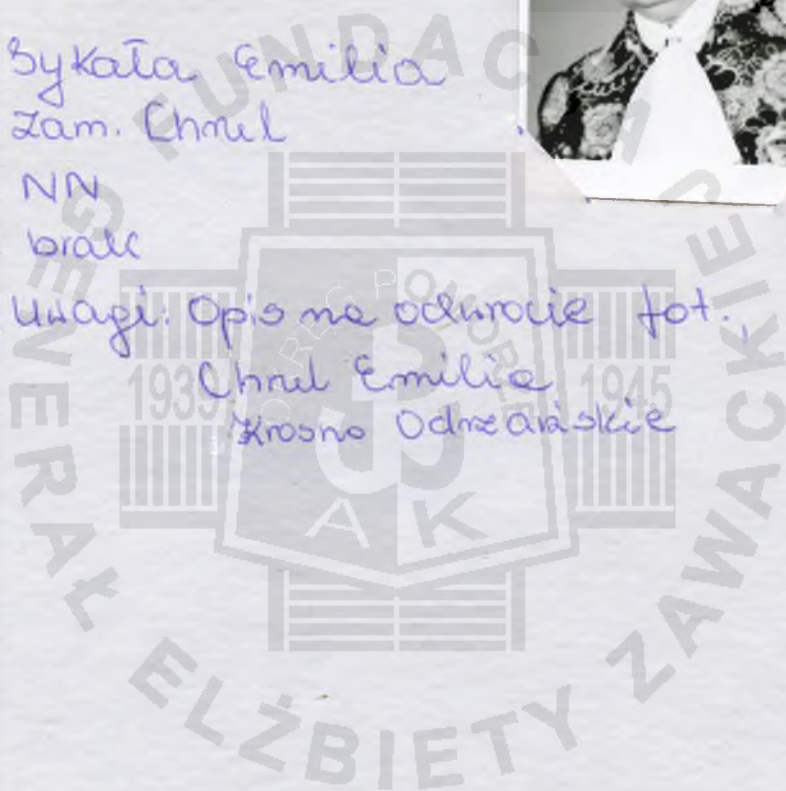 Bykała Emilia
zam. Chmel
NN
brak
Uwagi: Opis na odwrocie fot.,
Chmel Emilia
Krosno Odrzańskie
FUNDACJA
GENERAŁ ELŻBIETY ZAWACKIEJ
OKRĘG POMORZE
1939 1945
AK